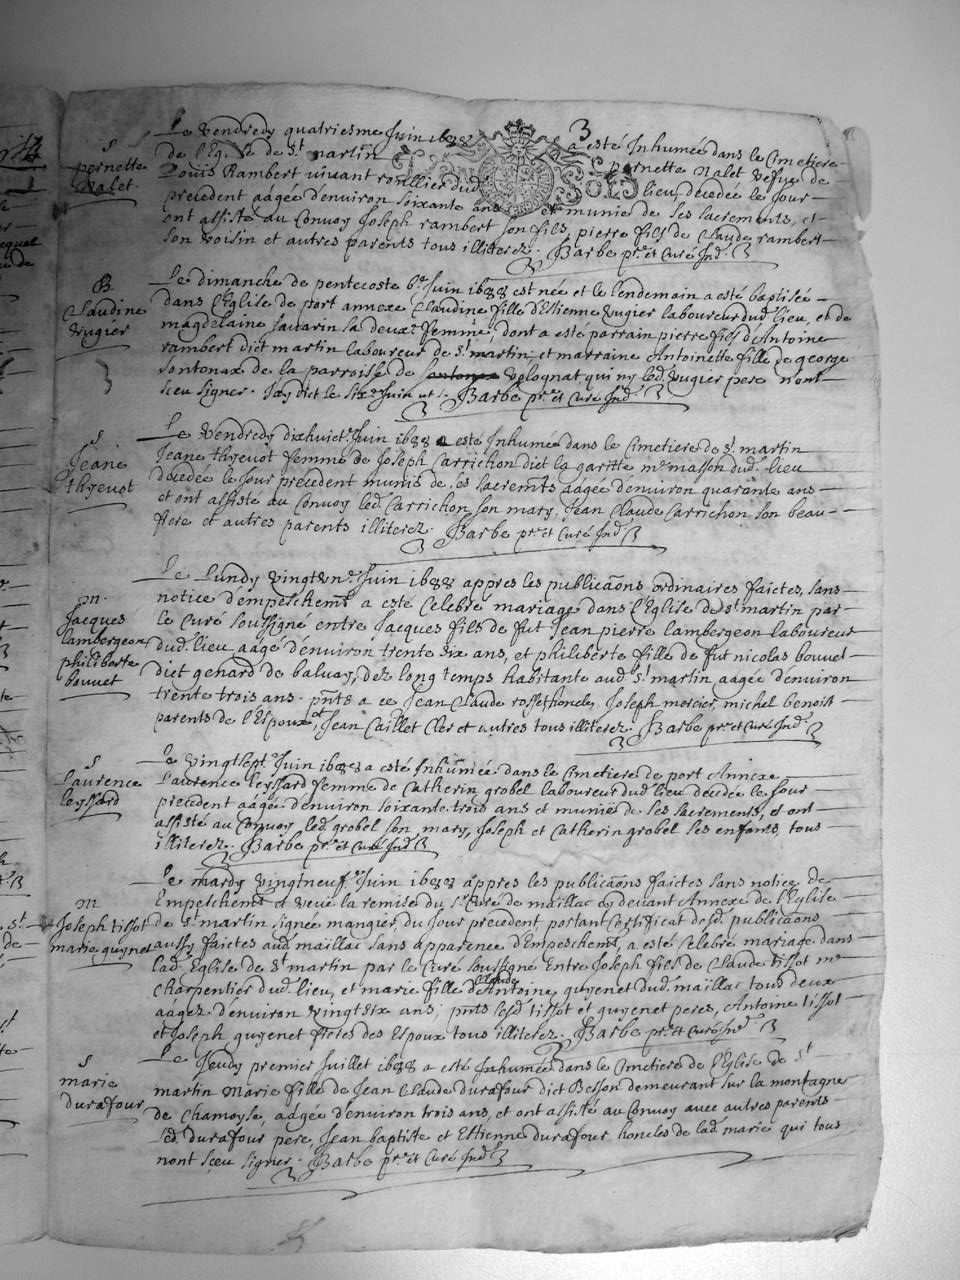 3
S
pernette
Nalet
Le Vendredy quatriesme Juin 1688 a esté Inhumée dans le Cimetiere
de l'Eglise de St martin pernette Nalet vefve de
Louis Rambert vivant roullier dud. lieu, decedée le Jour
precedent aagée d'environ soixante ans et munie de ses sacrements, et
ont assisté au Convoy Joseph rambert son fils, pierre fils de Claude rambert
son voisin et autres parents tous illiterez. Barbe ptre et Curé Ind.
B
Claudine
Vugier
Le dimanche de pentecoste 6e Juin 1688 est née et le lendemain a esté baptisée
dans l'Eglise de port annexe Claudine fille d'Estienne Vugier laboureur dud. lieu, et de
magdelaine savarin sa deuxe femme, dont a esté parrain pierre fils d'Antoine
rambert dict martin laboureur de St martin et marraine Antoinette fille de george
sontonax de la parroisse de Volognat qui ny led. Vugier pere n'ont
sceu signer. Barbe ptre et Curé Ind.
S
Jeane
thyevot
Le Vendredy dixhuicte Juin 1688 a esté Inhumée dans le Cimetiere de St martin
Jeane thyevot femme de Joseph Carrichon dict la garitte me masson dud. lieu
decedée le Jour precedent munis de ses sacremts aagée d'environ quarante ans
et ont assisté au Convoy led. Carrichon son mary, Jean Claude Carrichon son beau-
frere et autres parents illiterez. Barbe ptre et Curé Ind
m.
Jacques
lambergeon
philiberte
bouvet
Le Lundy vingtune Juin 1688 appres les publicaons ordinaires faictes, sans
notice d'empeschemt a esté Celebré mariage dans l'Eglise de St martin par
le Curé soussigné entre Jacques fils de fut Jean pierre lambergeon laboureur
dud. lieu aagé d'environ trente six ans, et philiberte fille de fut nicolas bouvet
dict genard de balvay, dez long temps habitante aud. St martin aagée d'environ
trente trois ans. pnts a ce Jean Claude rossethoncle, Joseph mercier, michel benoist
parents de l'Espoux, et Jean Caillet Cler et autres tous illiterez. Barbe ptre et Curé Ind
S
Laurence
leyssard
Le vingtsept. Juin 1688 a esté Inhumée dans le Cimetiere de port Annexe
Laurence leyssard femme de Catherin grobel laboureur dud. lieu decedée le Jour
precedent aagée d'environ soixante trois ans et munie de ses sacrements, et ont
assisté au Convoy led. grobel son mary, Joseph et Catherin grobel ses enfans, tous
illiterez. Barbe ptre et Curé Ind
m
Joseph tissot
marie guynet
Le mardy vingtneufe Juin 1688 appres les publicaons faictes sans notice de
l'Empeschemt et veue la remise du Sr Curé de maillac cy devant Annexe de l'Eglise
de St martin signée mangier, du Jour precedent portant Certificat desd. publicaons
aussy faictes aud. maillac sans apparence d'Empeschemt, a esté Celebré mariage dans
lad. Eglise de St martin par le Curé soussigné Entre Joseph fils de Claude tissot me
Charpentier dud. lieu, et marie fille d'Antoine Claude guyenet dud. maillac tous deux
aagez d'environ vingt six ans; pnts lesd. tissot et guyenet peres, Antoine tissot
et Joseph guyenet freres des Espoux tous illiterez. Barbe ptre et Curé Ind
S
marie
durafour
Le Jeudy premier Juillet 1688 a esté Inhumée dans le Cimetiere de l'Eglise de St
martin Marie fille de Jean Claude durafour dict Besson demeurant sur la montagne
de Chamoyse, aagée d'environ trois ans, et ont assisté au Convoy avec autres parents
led. durafour pere, Jean baptiste et Estienne durafour honcles de lad. marie qui tous
n'ont sceu signer. Barbe ptre et Curé Ind